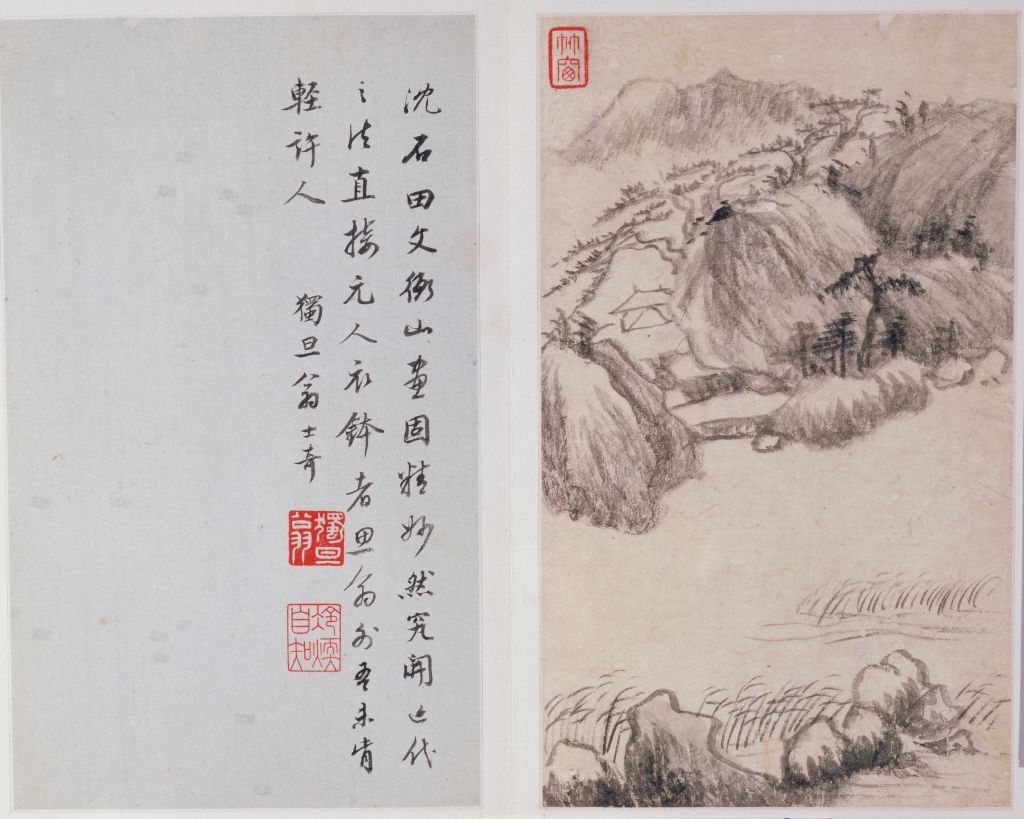 沈石田文衡山畫固精妙然究開近代
之法直接元人衣鉢者思翁外吾未肯
輕許人
獨旦翁士奇
獨旦翁
冷煖自知
竹窗